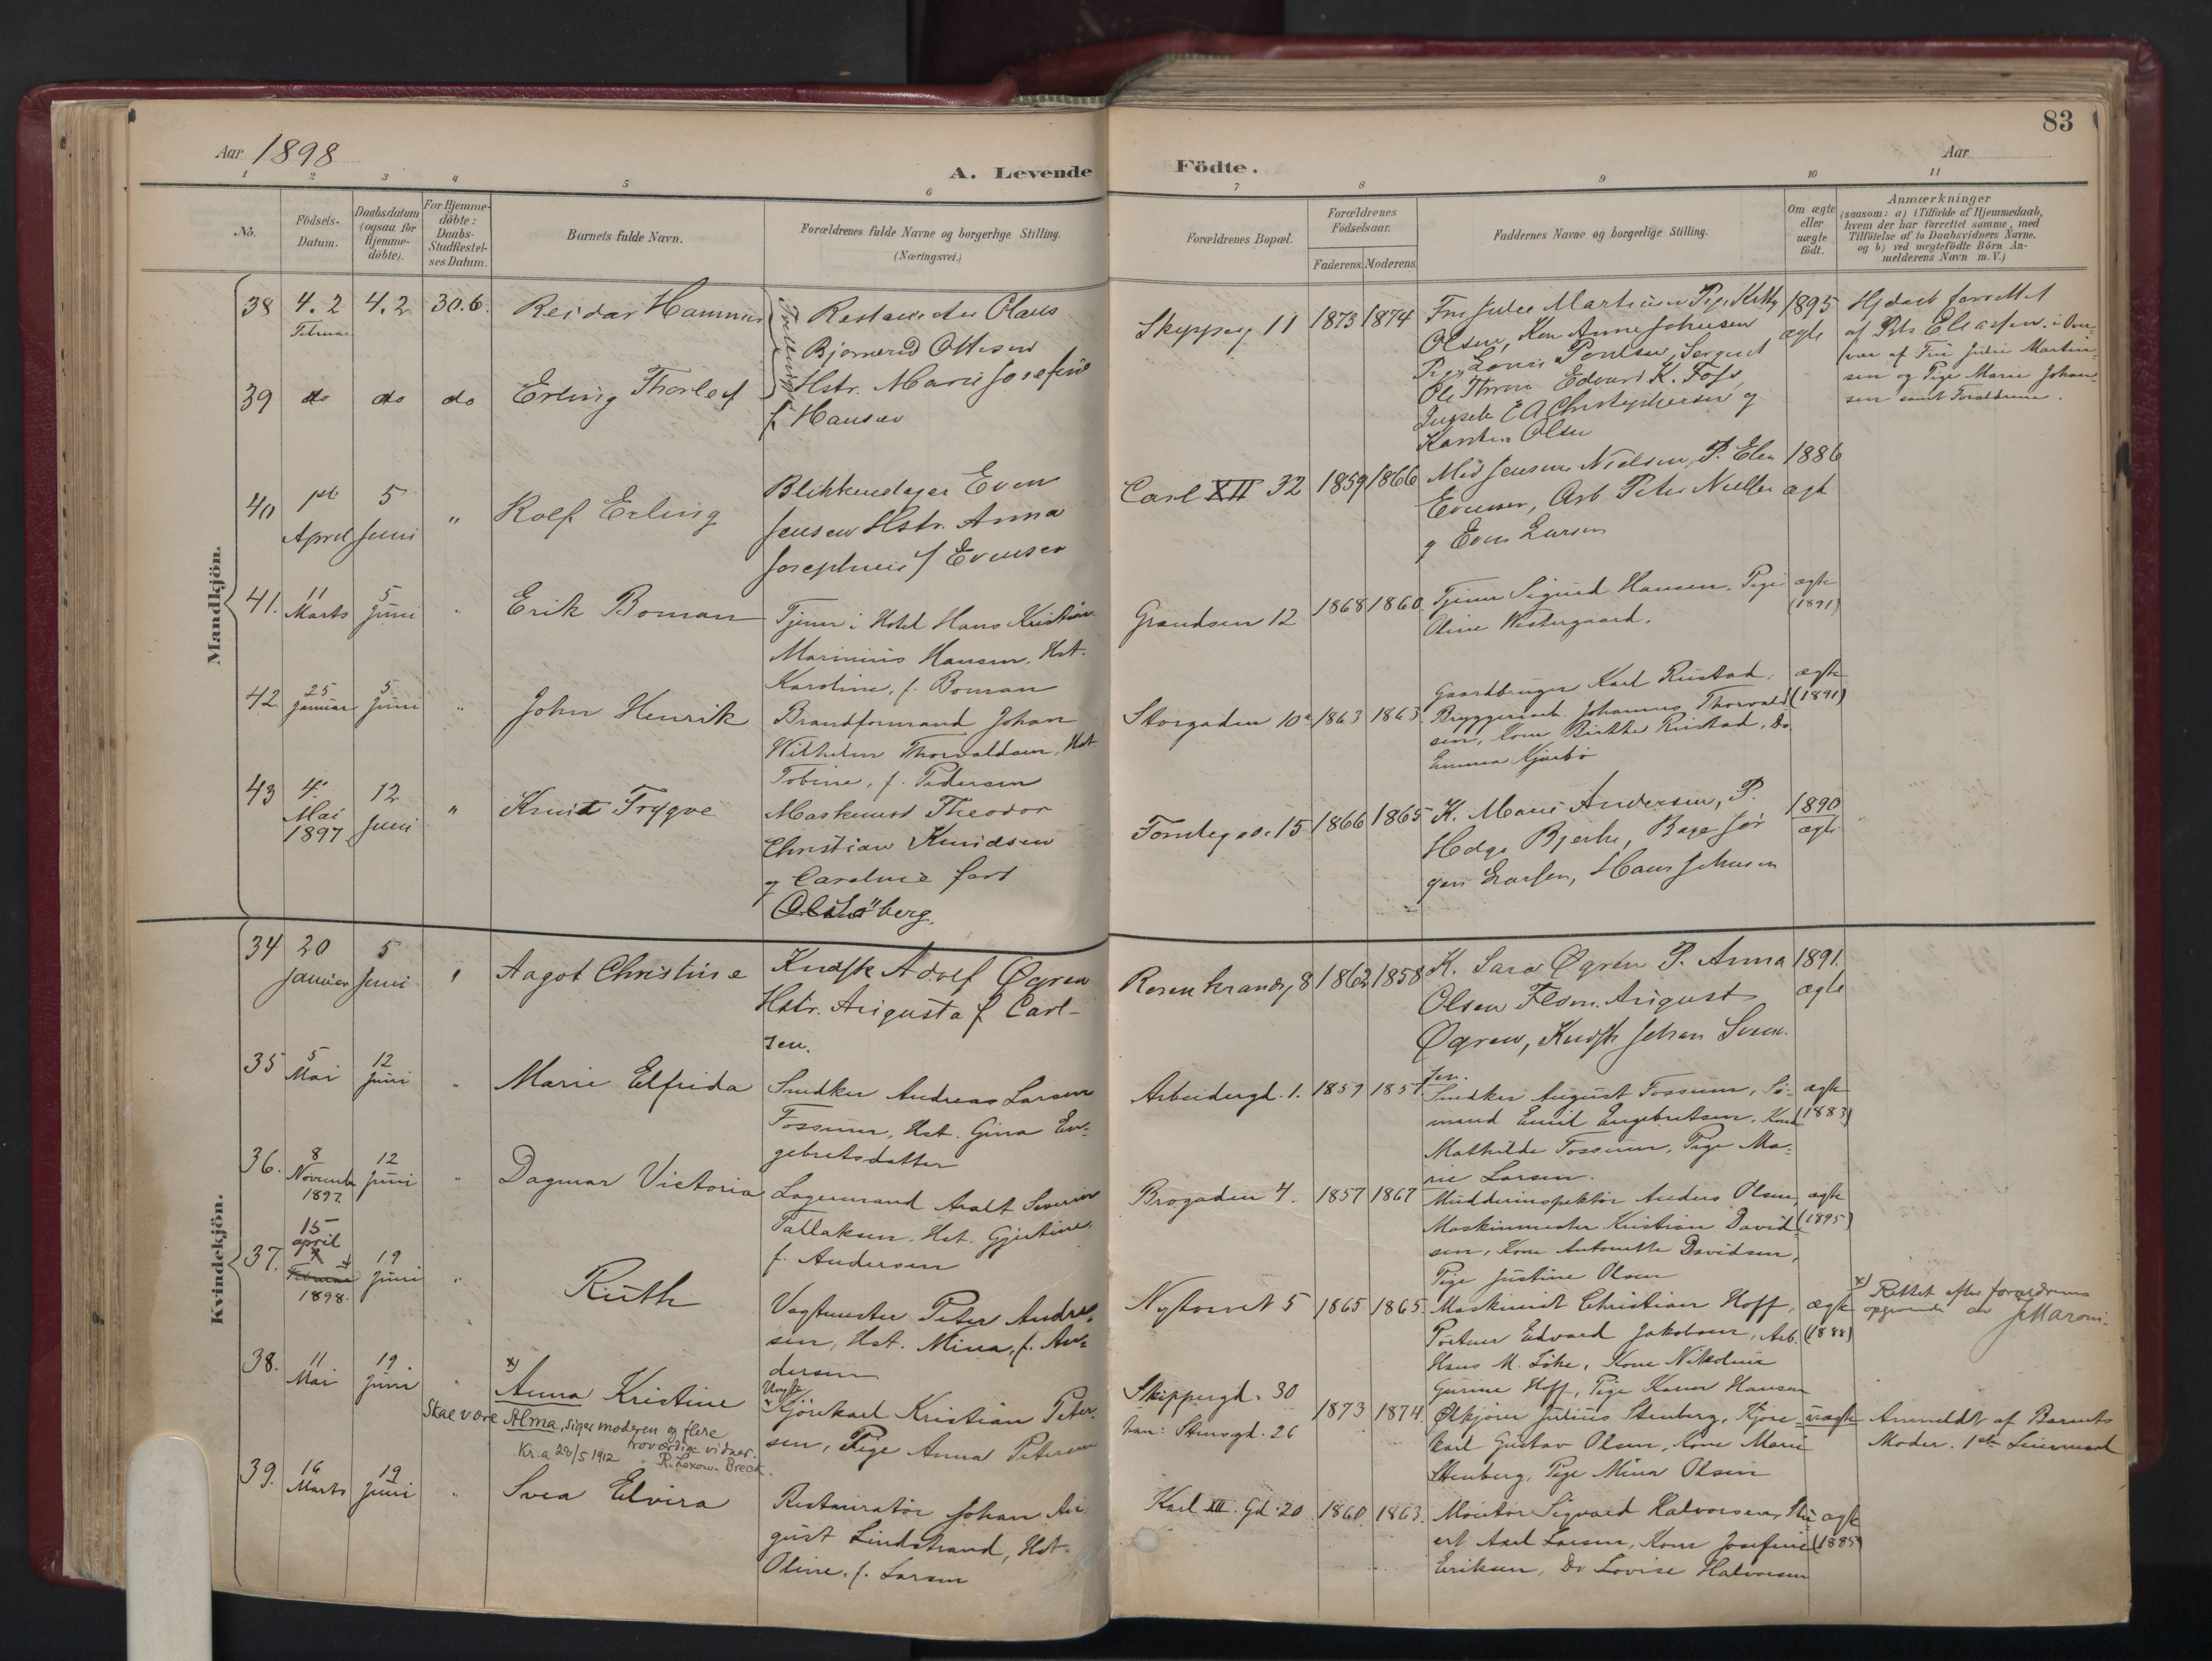 83
Aar 1898
A. Levende Födte.
Aar
1 2 3 4 5 6 7 8 9 10 11
No.
Födsels-
Datum.
Daabsdatum
(ogsaa for
Hjemme-
döbte).
For Hjemme-
döbte:
Daabs-
Stadfæstel-
ses Datum.
Barnets fulde Navn.
Forældrenes fulde Navne og borgerlige Stilling.
(Næringsvei.)
Forældrenes Bopæl.
Forældrenes
Födselsaar.
Faderens. Moderens.
Faddernes Navne og borgerlige Stilling.
Om ægte
eller
uægte
födt.
Anmærkninger
(saasom: a) i Tilfælde af Hjemmedaab,
hvem der har forrettet samme, med
Tilföielse af to Daabsvidners Navne.
og b) ved uægtefödte Börn An-
melderens Navn m. V.)
Mandkjön.
38 4. 2 4. 2 30.6. Reidar
Februar
Tvillinger
Olaus
Ottesen
Hstr. Marie Josefine
f. Hansen
Skipperg 11 1873 1874
Olsen, Kone Anne Johnsen
Edvard K. Foss,
E A Christophersen og
Olsen
1895
ægte
Hjdaab forrettet
af
af Julie Martin-
sen og Pige Marie Johan-
sen samt Forældrene.
39 do do do Erling Thorleif
40 1ste 5 " Rolf Erling
April Juni
Blikkenslager Even
Jensen Hstr. Anna
Josephine f Evensen
Carl XII 32 1859 1866
Nielsen, P. Elen
Evensen, Arb. Peter
og Even Larsen
1886
ægte
41. 11 5 " Erik Boman
Marts Juni
Tjener i Hotel Hans Kristian
Marinius Hansen, Hst.
Karoline, f. Boman
Grændsen 12 1868 1860.
Tjener Sigurd Hansen, Pige
Oline Westergaard.
ægte
(1891)
42 25 5 " John Henrik
Januar Juni
Brandformand Johan
Wilhelm Thorvaldsen, Hst.
Tobine, f. Pedersen
Storgaden 10 1863 1863.
Gaardbruger Karl Rustad,
Bryggeriarb. Johannes Thorvald-
sen, Kone Rikke Rustad, Do
Emma Kjærbo
ægte
(1891)
43 4. 12 " Knut Trygve
Mai Juni
1897
Maskinist Theodor
Christian Knudsen
og Caroline født
berg.
15 1866 1865
K. Marie Andersen, P.
Helga Bjerke, Bager Jør
gen Larsen, Hans Johnsen
1890
ægte
Kvindekjön.
34 20 5 " Aagot Christine
Januar Juni
Kudsk Adolf Øgren
Hstr. Augusta f Carl-
sen.
Rosenkrandsg 8 1862 1858
K. Sara Øgren P. Anna
Olsen August
Øgren, Kudsk Johan Svend-
sen.
1891.
ægte
35 5 12 " Marie Elfrida
Mai Juni
Snedker Andreas Larsen
Tossum, Hst. Gina En-
gebretsdatter
Arbeidergd. 1. 1857 1857.
Snedker August Fossum, Sø-
mand Emil Engebretsen, Kone
Mathilde Fossum, Pige Ma-
rie Larsen.
ægte
(1883)
36. 8 12 " Dagmar Victoria
Novembr Juni
1897.
Lagermand Aralt Severin
Tallaksen, Hst. Gjertine,
f. Andersen
Brogaden 4. 1857 1867
Mudderinspektør Anders Olsen,
Maskinmester Kristian David-
sen, Kone Antonette Davidsen,
Pige Justine Olsen
ægte
(1895)
37. 15 19 " Ruth
april Juni
x
Februar
1898.
Vagtmester Peter Andre-
sen, Hst. Mina, f. An-
dersen
Nytorvet 5 1865. 1865.
Maskinist Christian Hoff,
Portner Edvard Jakobsen, Arb.
Hans M. Lohe, Kone Nikoline
Gurine Hoff, Pige Karen Hansen
ægte
(1888)
x) Rettet efter forældrenes
opgivende av JMaroni.
38. 11 19. " x) Anna Kristine
Mai Juni
Skal være Alma, siger moderen og flere
troværdige vidner.
Kr.a 28/5 1912 R. Loxow. Breck.
Ungk.
Kjørekarl Kristian Peter-
sen, Pige Anna Petersen
Skippergd. 30
han: Stensgd. 26
1873 1874.
Ølkjører Julius Stenberg, Kjøre-
karl Gustav Olsen, Kone Marie
Stenberg, Pige Mina Olsen
uægte
Anmeldt af Barnets
Moder. 1ste Leiermaal
39. 16 19 " Svea Elvira
Marts Juni
Restauratør Johan Au-
gust Lindstrand, Hst.
Oline, f. Larsen
Karl XII. Gd. 20. 1860. 1863.
Montør Sigvard Halvorsen, Stu-
ert Axel Larsen, Kone Josefine
Eriksen, Do Lovise Halvorsen
ægte
(1885)